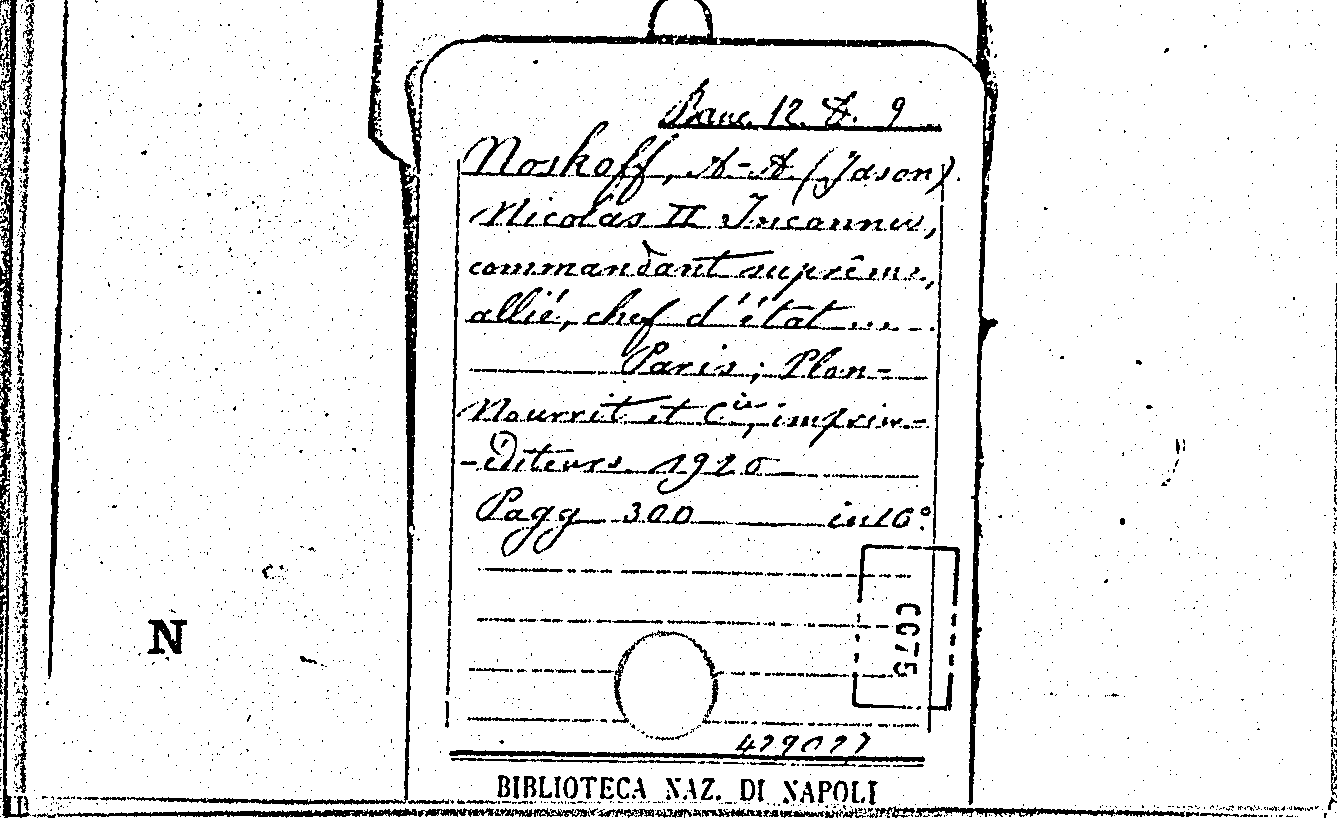 Banc. 12. D. 9
Noskoff, A-A. (Jason).
Nicolas II Inconnu,
commandant suprême,
allié, chef d'état ....
Paris; Plon-
Nourrit et Cie, imprim-
-éditeurs 1920
Pagg 300 in 16°.
N
0075
BIBLIOTECA NAZ. DI NAPOLI